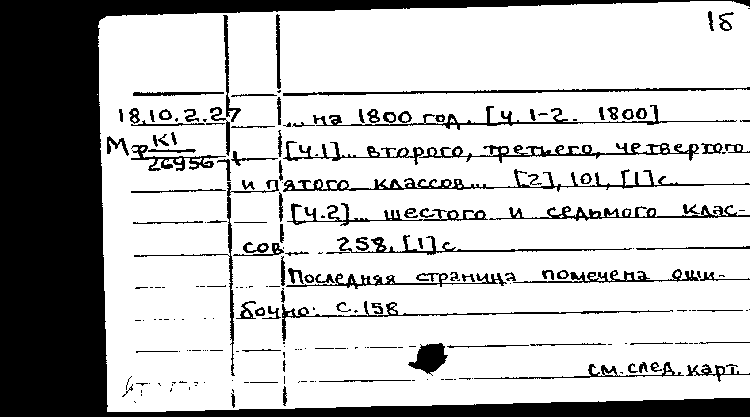 1б
18.10.2.27 ... на 1800 год. [ч. 1-2. 1800]
Мф К1/26956-1 [ч.1]... второго, третьего, четвертого
и пятого классов... [2], 101, [1] с.
[ч.2]... шестого и седьмого клас-
сов... 258, [1] с.
Последняя страница помечена оши-
бочно: с. 158
см. след. карт.